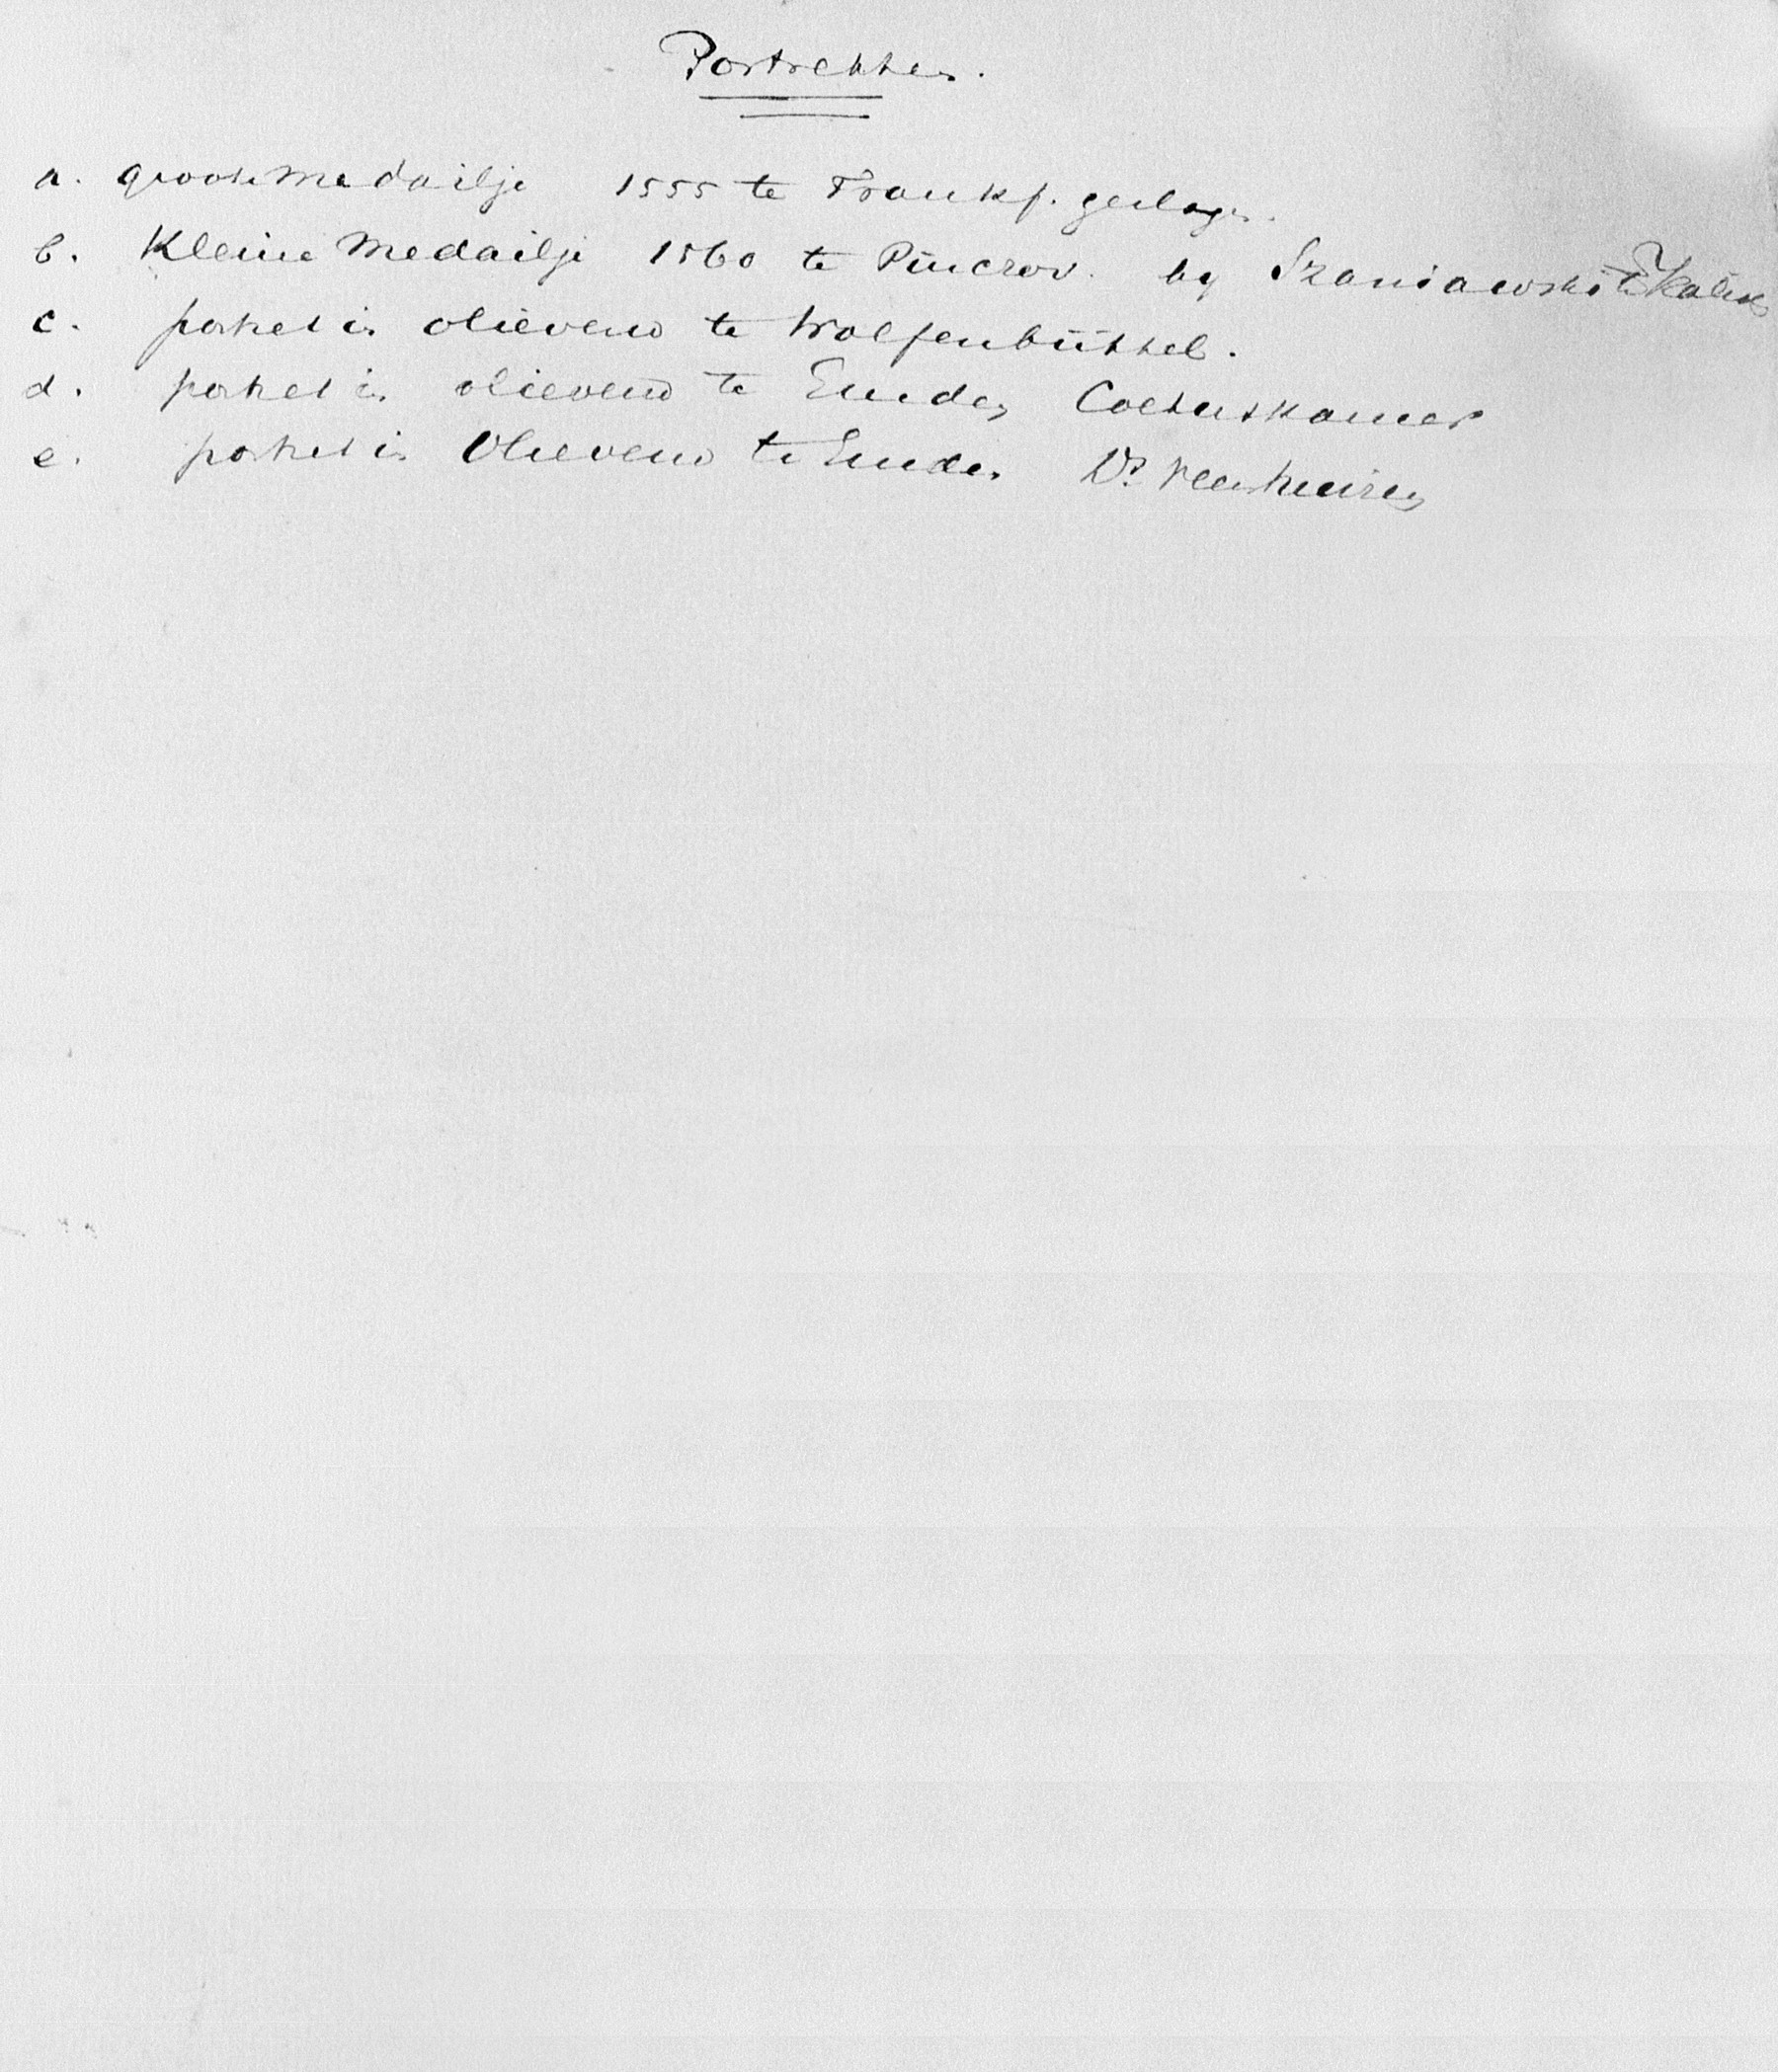 Portretten.
a. groote medailje 1555 te Frankf. geslagen.
b. Kleine Medailje 1560 te Pinczov. by Szaniawski te
c. portret in olieverw te Wolfenbüttel.
d. portret in olieverw te Emden Coetuskamer
e. portret in Olieverw te Emden Ds